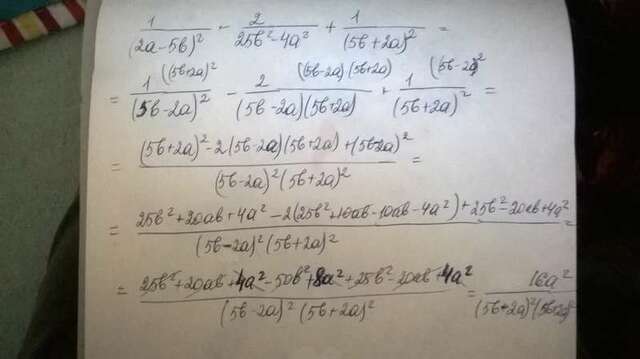 1/(2a-5b)² - 2/(25b²-4a²) + 1/(5b+2a)² =
= 1^((5b+2a)²)/(5b-2a)² - 2^((5b-2a)(5b+2a))/((5b-2a)(5b+2a)) + 1^((5b-2a)²)/(5b+2a)² =
= ((5b+2a)²-2(5b-2a)(5b+2a)+(5b-2a)²)/((5b-2a)²(5b+2a)²) =
= (25b²+20ab+4a²-2(25b²+10ab-10ab-4a²)+25b²-20ab+4a²)/((5b-2a)²(5b+2a)²) =
= (25b²+20ab+4a²-50b²+8a²+25b²-20ab+4a²)/((5b-2a)²(5b+2a)²) = 16a²/((5b-2a)²(5b+2a)²)